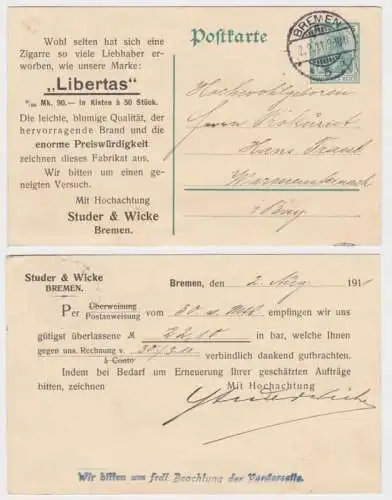 Wohl selten hat sich eine
Zigarre so viele Liebhaber er-
worben, wie unsere Marke:
„Libertas"
Mk. 90.— in Kisten à 50 Stück.
Die leichte, blumige Qualität, der
hervorragende Brand und die
enorme Preiswürdigkeit
zeichnen dieses Fabrikat aus.
Wir bitten um einen ge-
neigten Versuch.
Mit Hochachtung
Studer & Wicke
Bremen.
Postkarte
BREMEN
Hochwohlgeboren
Herrn Prokurist
Hans
Warmensteinach
i/Bay
Studer & Wicke
BREMEN.
Bremen, den 2. Aug. 1911
Per Überweisung
Postanweisung vom 30. v. Mts empfingen wir uns
gütigst überlassene M 22,10 in bar, welche Ihnen
gegen uns. Rechnung v. verbindlich dankend gutbrachten.
à Conto
Indem bei Bedarf um Erneuerung Ihrer geschätzten Aufträge
bitten, zeichnen Mit Hochachtung
Studer & Wicke
Wir bitten um frdl. Beachtung der Vorderseite.